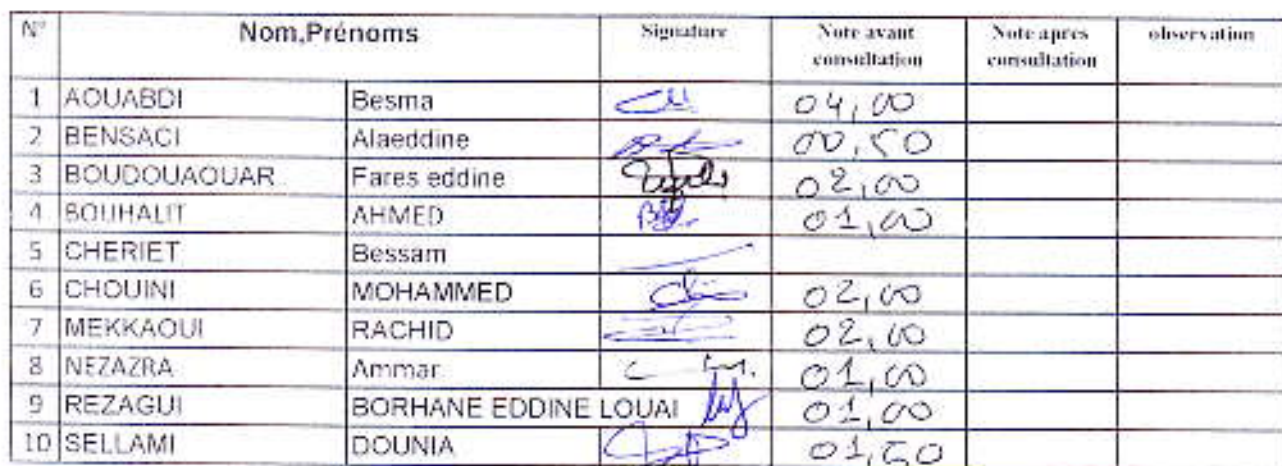 N° Nom,Prénoms Signature Note avant consultation Note après consultation observation
1 AOUABDI Besma 04,00
2 BENSACI Alaeddine 00,50
3 BOUDOUAOUAR Fares eddine 02,00
4 BOUHALIT AHMED 01,00
5 CHERIET Bessam
6 CHOUINI MOHAMMED 02,00
7 MEKKAOUI RACHID 02,00
8 NEZAZRA Ammar 01,00
9 REZAGUI BORHANE EDDINE LOUAI 01,00
10 SELLAMI DOUNIA 01,50